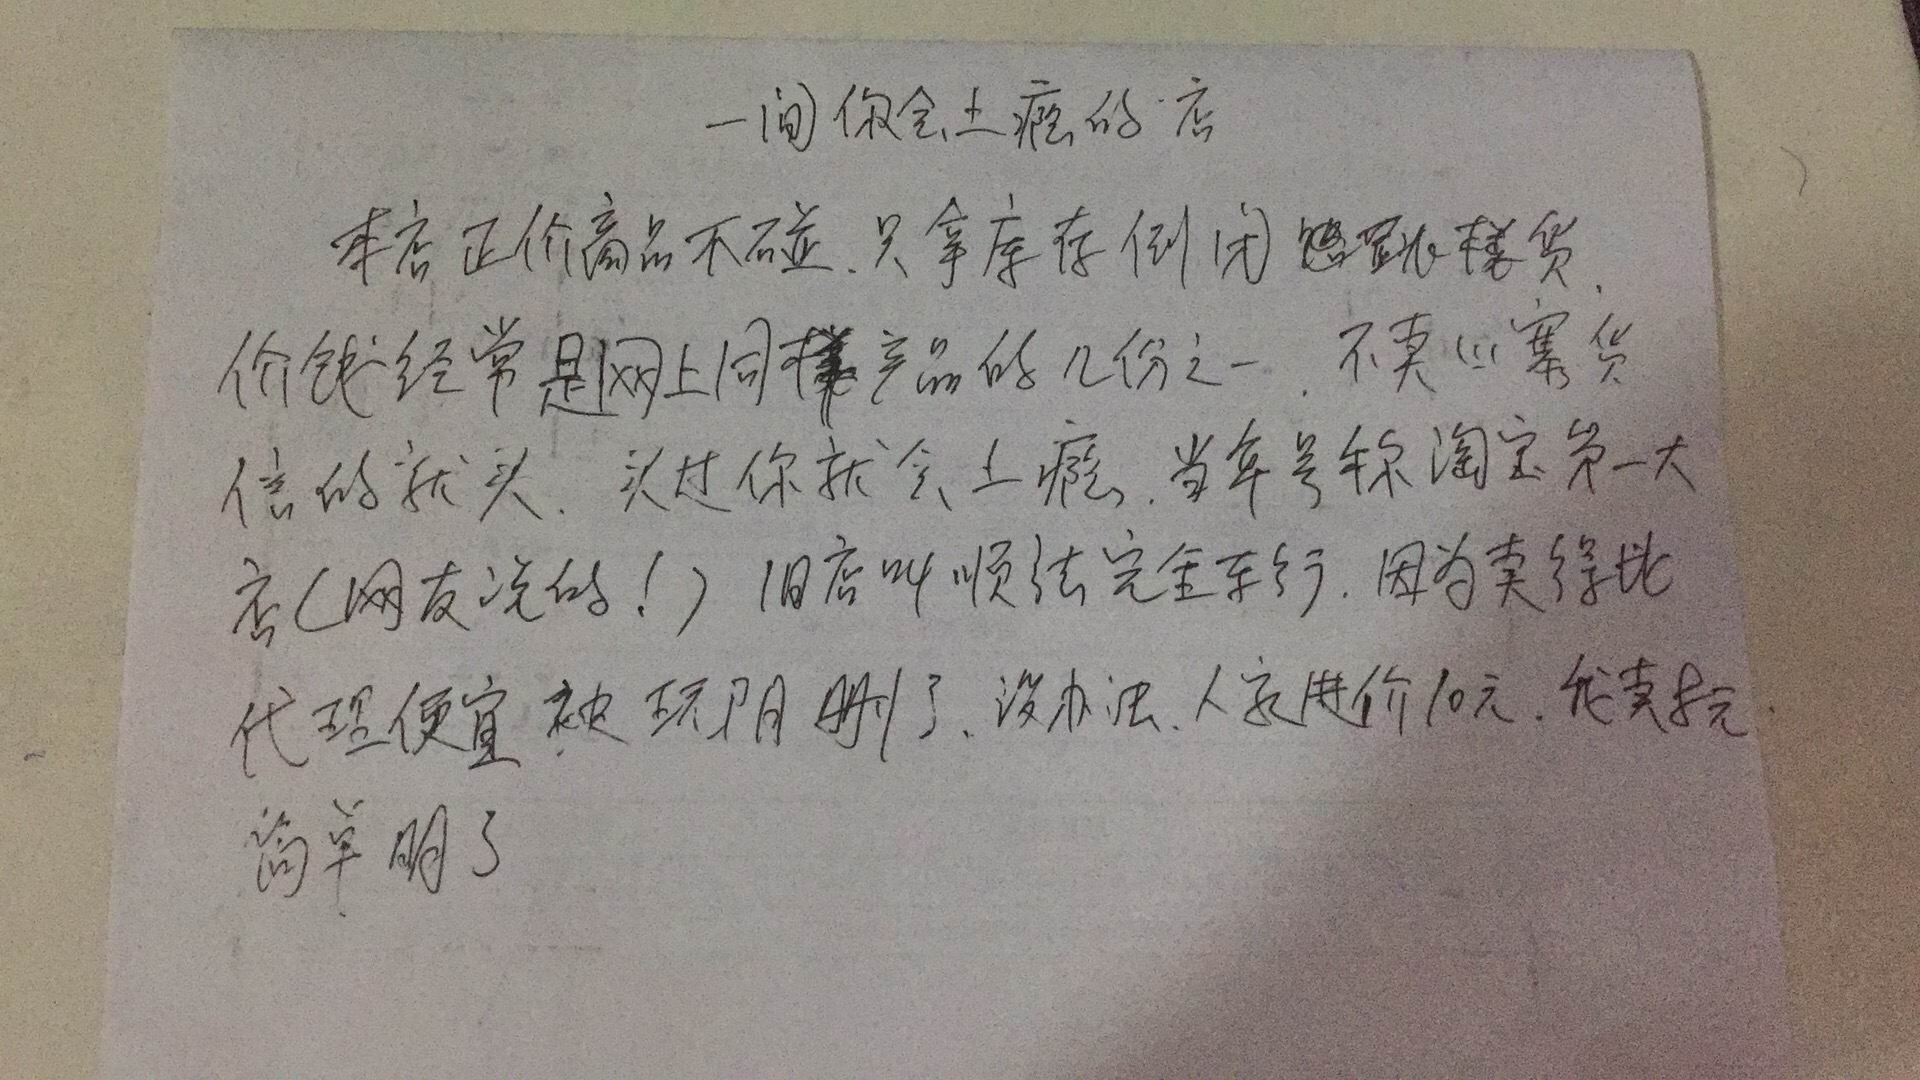 一间你会上瘾的店
本店正价商品不碰.只拿库存倒闭样货.
价钱经常是网上同样产品的几份之一.不卖山寨货
信的就买.买过你就会上瘾.当年号称淘宝第一大
店(网友说的!)旧店叫顺法完全车行.因为卖得比
代理便宜被玩阴删了.没办法.人家进价10元.我卖8元.
简单明了